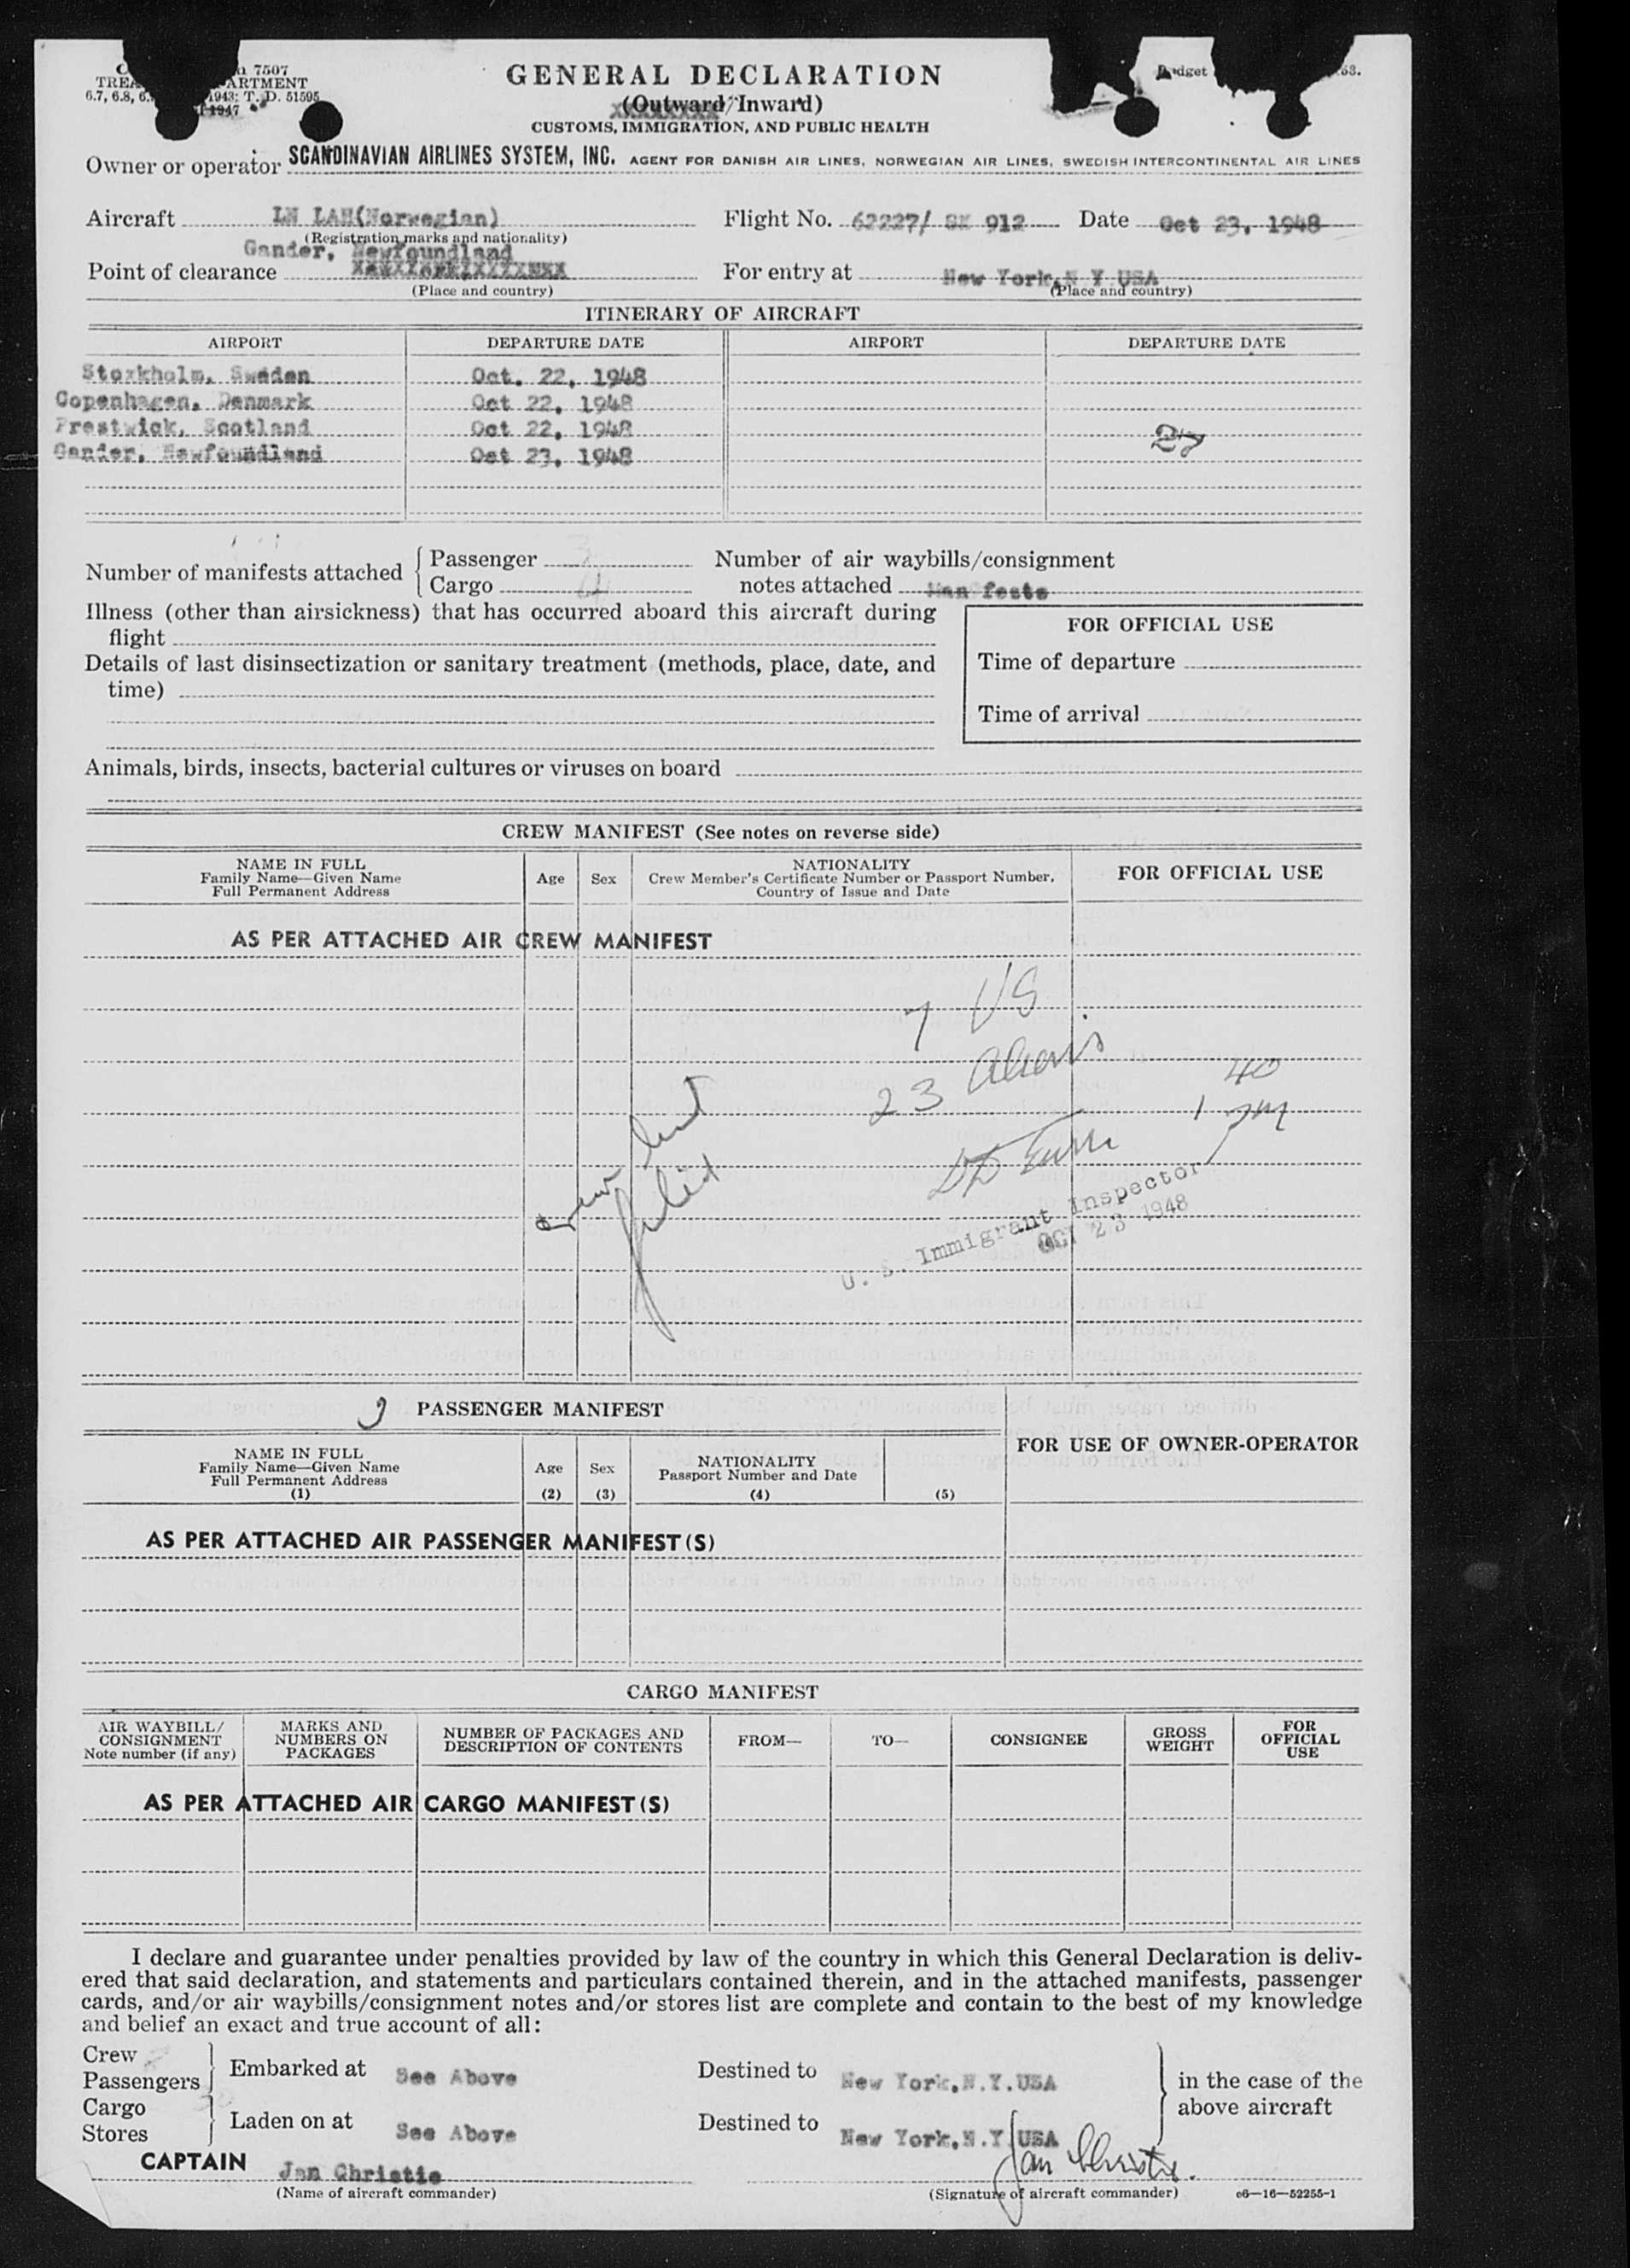 7507
GENERAL DECLARATION
(Outward/Inward)
CUSTOMS, IMMIGRATION, AND PUBLIC HEALTH
6.7, 6.8, 1943; T. D. 51595
1947
Owner or operator SCANDINAVIAN AIRLINES SYSTEM, INC. AGENT FOR DANISH AIR LINES, NORWEGIAN AIR LINES, SWEDISH INTERCONTINENTAL AIR LINES
Aircraft LN LAH(Norwegian) Flight No. 62227/ SK 912 Date Oct 23, 1948
(Registration marks and nationality)
Gander, Newfoundland
Point of clearance For entry at New York, N Y USA
(Place and country) (Place and country)
ITINERARY OF AIRCRAFT
AIRPORT DEPARTURE DATE AIRPORT DEPARTURE DATE
Stozkholm, Sweden Oct. 22, 1948
Copenhagen, Denmark Oct 22, 1948
Prestwick, Scotland Oct 22, 1948
27
Gander, Newfoundland Oct 23, 1948
Number of manifests attached Passenger 3 Number of air waybills/consignment
Cargo notes attached Man fests
Illness (other than airsickness) that has occurred aboard this aircraft during
flight
FOR OFFICIAL USE
Details of last disinsectization or sanitary treatment (methods, place, date, and
time)
Time of departure
Time of arrival
Animals, birds, insects, bacterial cultures or viruses on board
CREW MANIFEST (See notes on reverse side)
NAME IN FULL
Family Name—Given Name
Full Permanent Address
Age Sex
NATIONALITY
Crew Member's Certificate Number or Passport Number,
Country of Issue and Date
FOR OFFICIAL USE
AS PER ATTACHED AIR CREW MANIFEST
7 US
23 Aliens
1 40 PM
Crew list
filed
U. S. Immigrant Inspector
OCT 23 1948
PASSENGER MANIFEST
NAME IN FULL
Family Name—Given Name
Full Permanent Address
(1)
Age
(2)
Sex
(3)
NATIONALITY
Passport Number and Date
(4)
(5)
FOR USE OF OWNER-OPERATOR
AS PER ATTACHED AIR PASSENGER MANIFEST(S)
CARGO MANIFEST
AIR WAYBILL/
CONSIGNMENT
Note number (if any)
MARKS AND
NUMBERS ON
PACKAGES
NUMBER OF PACKAGES AND
DESCRIPTION OF CONTENTS
FROM—
TO—
CONSIGNEE
GROSS
WEIGHT
FOR
OFFICIAL
USE
AS PER ATTACHED AIR CARGO MANIFEST(S)
I declare and guarantee under penalties provided by law of the country in which this General Declaration is deliv-
ered that said declaration, and statements and particulars contained therein, and in the attached manifests, passenger
cards, and/or air waybills/consignment notes and/or stores list are complete and contain to the best of my knowledge
and belief an exact and true account of all:
Crew
Passengers
Embarked at See Above Destined to New York, N.Y. USA
in the case of the
above aircraft
Cargo
Stores
Laden on at See Above Destined to New York, N.Y. USA
CAPTAIN Jan Christie Jan Christie.
(Name of aircraft commander) (Signature of aircraft commander) c6—16—52255-1